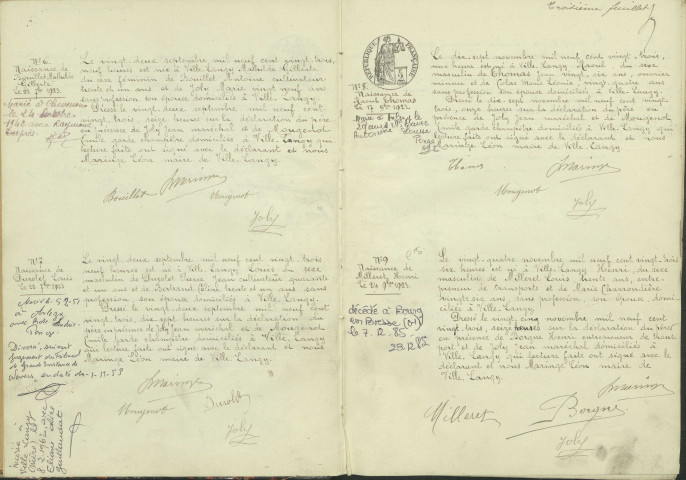 Troisième feuillet
N° 6
Naissance de
Bouillet Mathilde
Gilberte
Le 22 7bre 1923.
Le vingt-deux septembre mil neuf cent vingt-trois,
neuf heures est née à Ville-Langy Mathilde Gilberte
du sexe féminin de Bouillet Antoine cultivateur
trente et un ans et de Joly Marie vingt neuf ans
sans profession son épouse domiciliés à Ville-Langy.
Dressé le vingt-deux septembre mil neuf cent
vingt-trois, seize heures sur la déclaration du père
en présence de Joly Jean maréchal et de Mougenot
Emile garde champêtre domiciliés à Ville-Langy qui
lecture faite ont signé avec le déclarant et nous
Maringe Léon maire de Ville-Langy.
Bouillet
Maringe
Mougenot
Joly
N° 7
Naissance de
Durolet Louis
Le 22 7bre 1923.
Le vingt-deux septembre mil neuf cent vingt-trois
neuf heures est né à Ville-Langy Louis du sexe
masculin de Durolet Pierre Jean cultivateur quarante
et un ans et de Bertrand trente et un ans sans
profession son épouse domiciliés à Ville-Langy.
Dressé le vingt-deux septembre mil neuf cent
vingt-trois, dix heures sur la déclaration du
père en présence de Joly Jean maréchal et de Mougenot
Emile garde champêtre domiciliés à Ville-Langy
qui lecture faite ont signé avec le déclarant et nous
Maringe Léon maire de Ville-Langy.
Divorcé, suivant
jugement du Tribunal
de Grande Instance de
Nevers, en date du
Marié à
Ville-Langy
Maringe
Mougenot
Durolet
Joly
RÉPUBLIQUE FRANÇAISE
N° 8
Naissance de
Raoul Thomas
Le 17 9bre 1923.
Le dix-sept novembre mil neuf cent vingt-trois,
une heure est né à Ville-Langy Raoul du sexe
masculin de Thomas Jean vingt six ans, ouvrier
et de Colas Marie Léonie, vingt quatre ans
sans profession son épouse domiciliés à Ville-Langy.
Dressé le dix-sept novembre mil neuf cent vingt-
trois, onze heures sur la déclaration du père
en présence de Joly Jean maréchal et de Mougenot
Emile garde champêtre domiciliés à Ville-Langy qui
lecture faite ont signé avec le déclarant et nous
Maringe Léon maire de Ville-Langy.
Thomas
Maringe
Mougenot
Joly
N° 9
Naissance de
Milleret, Henri
Le 24 9bre 1923.
Le vingt-quatre novembre mil neuf cent vingt-trois
six heures est né à Ville-Langy Henri, du sexe
masculin de Milleret Louis trente ans, entre-
preneur de transports et de Marie
vingt-six ans, sans profession, son épouse domi-
ciliés à Ville-Langy.
Dressé le vingt cinq novembre mil neuf cent
vingt-trois, seize heures sur la déclaration du père
en présence de Borgne Henri entrepreneur de trans-
port et de Joly Jean maréchal domiciliés à
Ville-Langy qui lecture faite ont signé avec le
déclarant et nous Maringe Léon maire de
Ville-Langy.
décédé à Bourg
en Bresse
le 7.12.85
Maringe
Milleret
Borgne
Joly